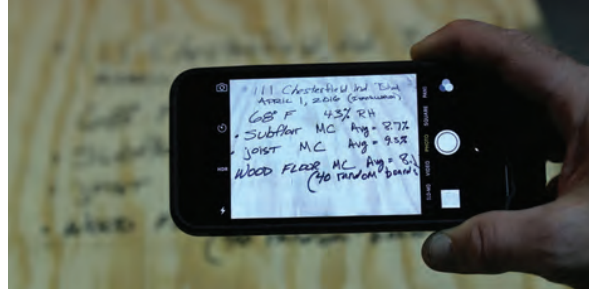 • 111 Chesterfield Ind Blvd
APRIL 1, 2016
68° F 43% RH
• Subfloor MC Avg = 8.7%
• joist MC Avg = 9.5%
WOOD FLOOR MC Avg = 8.
(40 random boards
HDR
SLO-MO VIDEO PHOTO SQUARE PANO